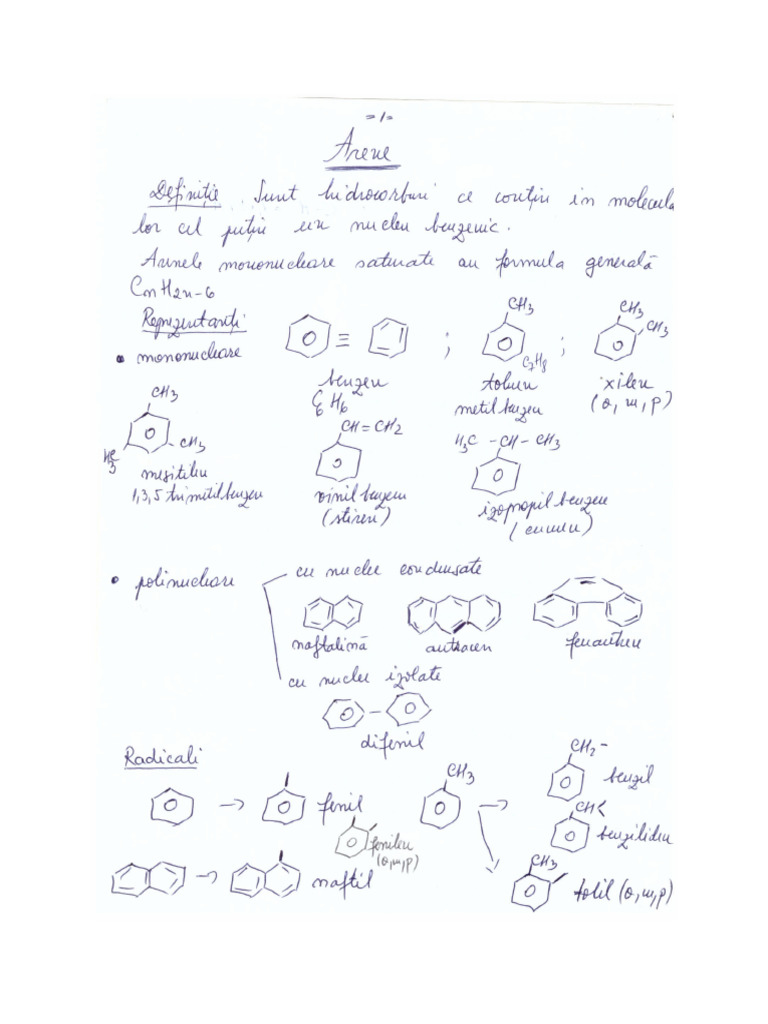 =1=
Arene
Definiție. Sunt hidrocarburi ce conțin în molecula
lor cel puțin un nucleu benzenic.
Arenele mononucleare saturate au formula generală
CnH2n-6
Reprezentanți:
• mononucleare
≡ ; CH3 C7H8 ; CH3 CH3
benzen toluen xilen
C6H6 metil benzen (o, m, p)
CH3 CH3 H3C
mesitilen
1,3,5 trimetilbenzen
CH=CH2
vinil benzen
(stiren)
H3C -CH- CH3
izopropil benzen
(cumen)
• polinucleare
cu nuclee condensate
naftalină antracen fenantren
cu nuclee izolate
difenil
Radicali
→ fenil
fenilen
(o,m,p)
CH3 →
CH2-
benzil
CH<
benziliden
CH3
tolil (o,m,p)
→ naftil